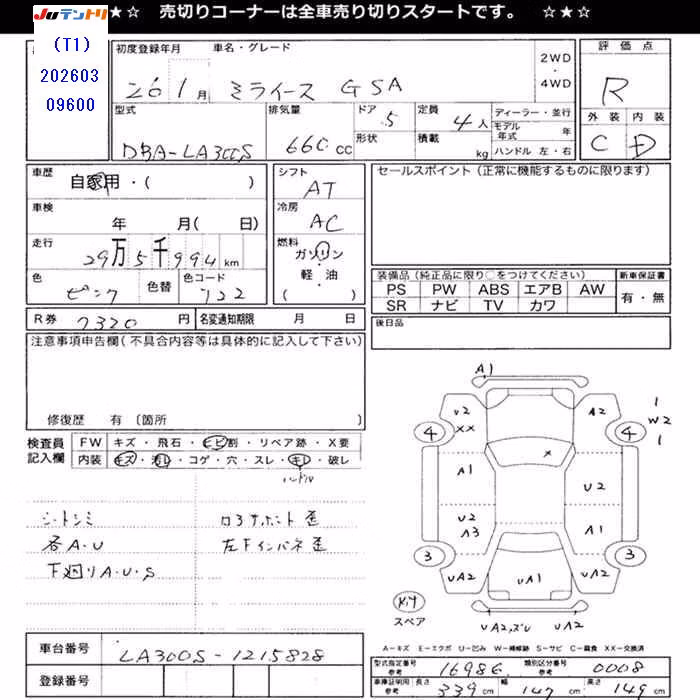 JUテントリ ★☆ 売切りコーナーは全車売り切りスタートです。 ☆★☆
(T1)
202603
09600
初度登録年月 車名・グレード
26 1月 ミライース GSA
2WD
・
4WD
評価点
R
外装 内装
C D
型式 排気量 ドア 定員 ディーラー・並行
DBA-LA300S 660cc 5 4人
形状 積載 kg
モデル年式 年
ハンドル 左・右
車歴 自家用・( )
シフト AT
車検 年 月( 日)
冷房 AC
走行 29万5千994km
燃料 ガソリン
軽・油
( )
色 ピンク 色替 色コード
R券 7320円 名変通知期限 月 日
セールスポイント(正常に機能するものに限ります)
装備品(純正品に限り○をつけてください) 新車保証書
PS PW ABS エアB AW 有・無
SR ナビ TV カワ
後日品
注意事項申告欄(不具合内容等は具体的に記入して下さい)
修復歴 有〔箇所 〕
検査員記入欄 FW キズ・飛石・ヒビ割・リペア跡・X要
内装 キズ・汚れ・コゲ・穴・スレ・キレ・破レ
ハンドル
シートシミ
各A・U
下廻りA・U・S
ロアサポート歪
左下インパネ歪
A1
U2
XX
A2
1
W2
1
4
4
X
A1
U2
U2
A3
A1
3
3
UA2
UA1
UA2
キット
スペア
UA2,ズレ UA2
A-キズ E-エクボ U-凹み W-補修跡 S-サビ C-腐食 XX-交換済
車台番号 LA300S-1215828
登録番号
型式指定番号 参考 16986 類別区分番号 参考 0008
車庫証明用 参考 長さ 339cm 幅 147cm 高さ 149cm